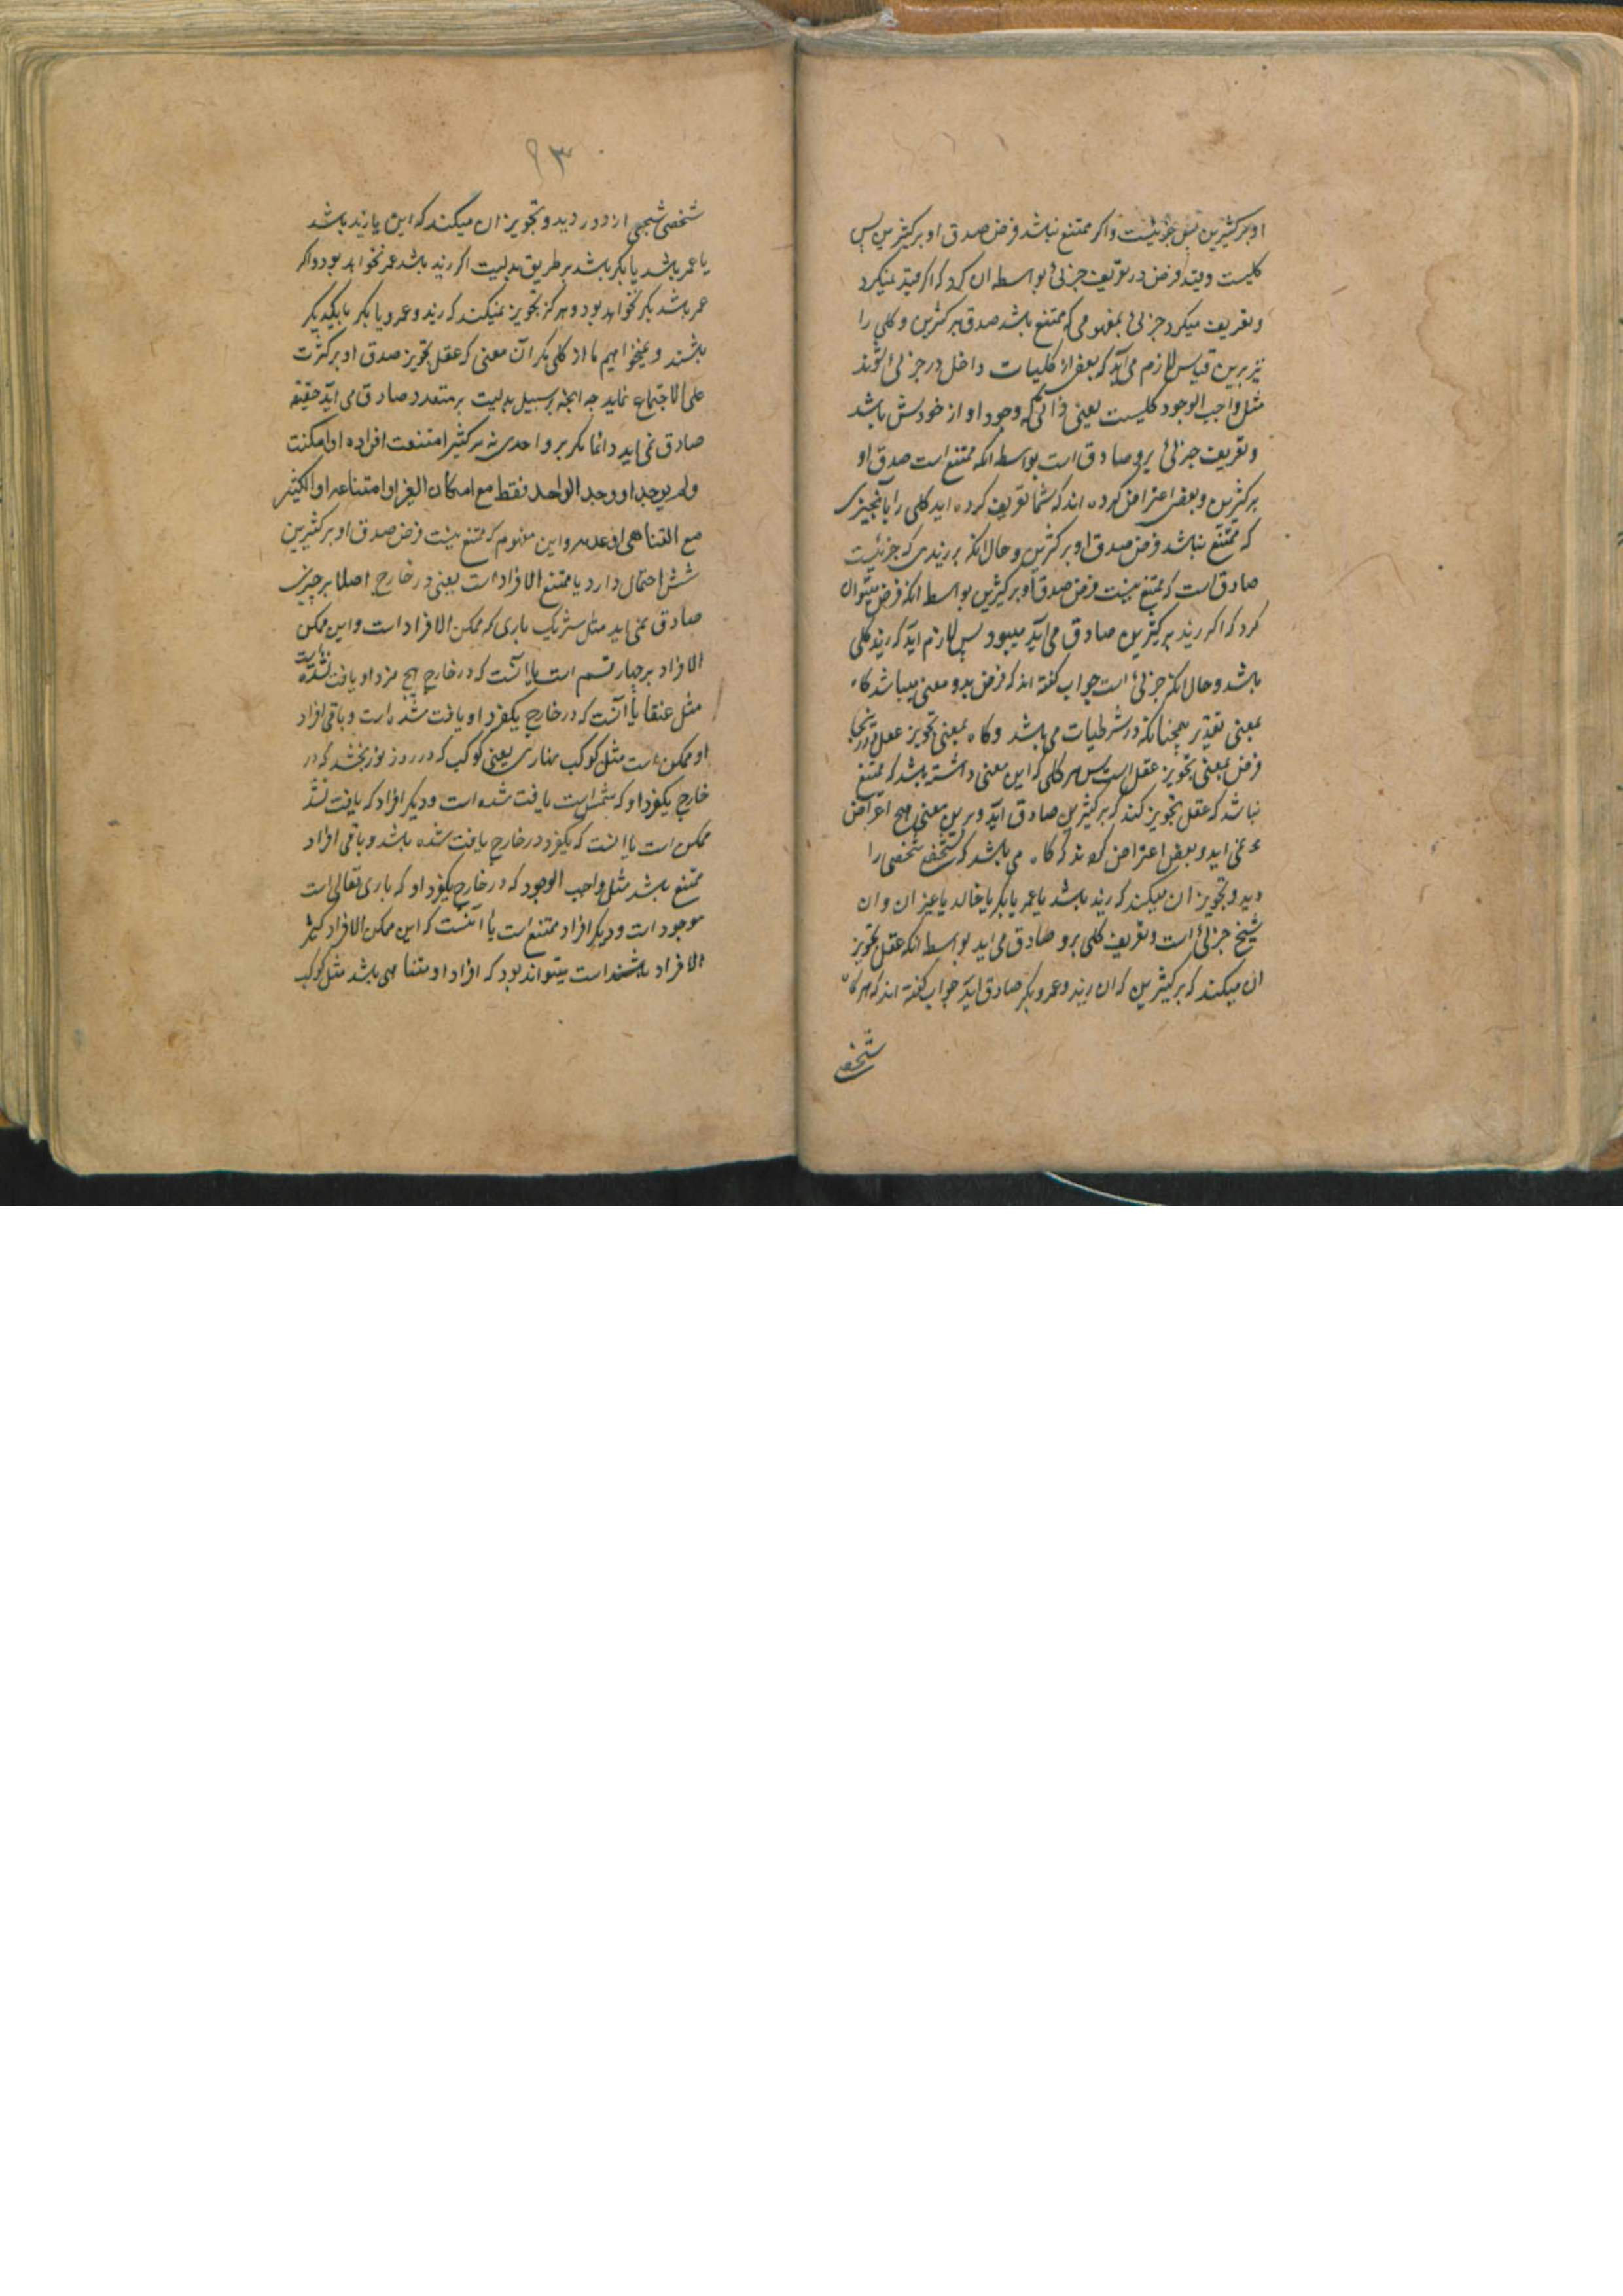 او بر کثیرین پس جزئیست و اکر ممتنع نباشد فرض صدق او بر کثیرین پس
کلیست و قید فرض در تعریف جزئی بواسطه ان کرد که اکر قید نمیکرد
و تعریف میکرد جزئی بمفهومی که ممتنع باشد صدق بر کثیرین و کلی را
نیز برین قیاس لازم می آید که بعضی از کلیات داخل در جزئی شوند
مثل واجب الوجود کلیست یعنی ذاتی که وجود او از خودش باشد
و تعریف جزئی برو صادق است بواسطه انکه ممتنع است صدق او
بر کثیرین و بعضی اعتراض کرده اند که شما تعریف کرده اید کلی را بانچیزی
که ممتنع نباشد فرض صدق او بر کثیرین و حال انکه بر زیدی که جزئیست
صادق است که ممتنع نیست فرض صدق او بر کثیرین بواسطه انکه فرض میتوان
کرد که اکر زید بر کثیرین صادق می آید میبود پس لازم آید که زید کلی
باشد و حال انکه جزئی است جواب کفته اند که فرض بدو معنی میباشد کاه
بمعنی تقدیر همچنانکه در شرطیات می باشد و کاه بمعنی تجویز عقل و در ینجا
فرض بمعنی تجویز عقل است پس هر کلی که این معنی داشته باشد که ممتنع
نباشد که عقل تجویز کند که بر کثیرین صادق آید و برین معنی هیچ اعتراض
نمی اید و بعضی اعتراض کرده‌اند که کاه می باشد که شخصی شخصی را
دید و تجویز ان میکند که زید باشد یا عمر یا بکر یا خالد یا غیر ان و ان
شبح جزئی است و تعریف کلی برو صادق می اید بواسطه انکه عقل تجویز
ان میکند که بر کثیرین که ان زید و عمرو و بکر صادق آید جواب کفته اند که هر کاه
شخصی
۹۳
شخصی شبحی از دور دید و تجویز ان میکند که این یا زید باشد
یا عمر باشد یا بکر باشد بر طریق بدلیت اکر زید باشد عمر نخواهد بود و اکر
عمر باشد بکر نخواهد بود و هرکز تجویز نمیکند که زید و عمرو یا بکر با یکدیکر
باشند و نمیخواهیم ما از کلی مکر آن معنی که عقل تجویز صدق او بر کثرت
علی الاجتماع نماید چه انچه بر سبیل بدلیت بر متعدد صادق می آید حقیقة
صادق نمی اید دائما مکر بر واحدی نه بر کثیر امتنعت افراده او امکنت
ولم یوجد او وجد الواحد فقط مع امکان الغیر او امتناعه او الکثیر
مع التناهی او عدمه و این مفهوم که ممتنع نیست فرض صدق او بر کثیرین
شش احتمال دارد یا ممتنع الافراد است یعنی در خارج اصلا بر چیزی
صادق نمی اید مثل شریک باری که ممکن الافراد است و این ممکن
الافراد بر چهار قسم است یا آنست که در خارج هیچ فرد او یافت نشده
مثل عنقا یا آنست که در خارج یکفرد او یافت شده است و باقی افراد
او ممکن است مثل کوکب نهاری یعنی کوکب که در روز نور بخشد که در
خارج یکفرد او که شمس است یافت شده است و دیکر افراد که یافت نشده
ممکن است یا انست که یکفرد در خارج یافت شده باشد و باقی افراد
ممتنع باشد مثل واجب الوجود که در خارج یکفرد او که باری تعالی است
موجود است و دیکر افراد ممتنع است یا آنست که این ممکن الافراد کثیر
الافراد باشند است میتواند بود که افراد او متناهی باشد مثل کوکب